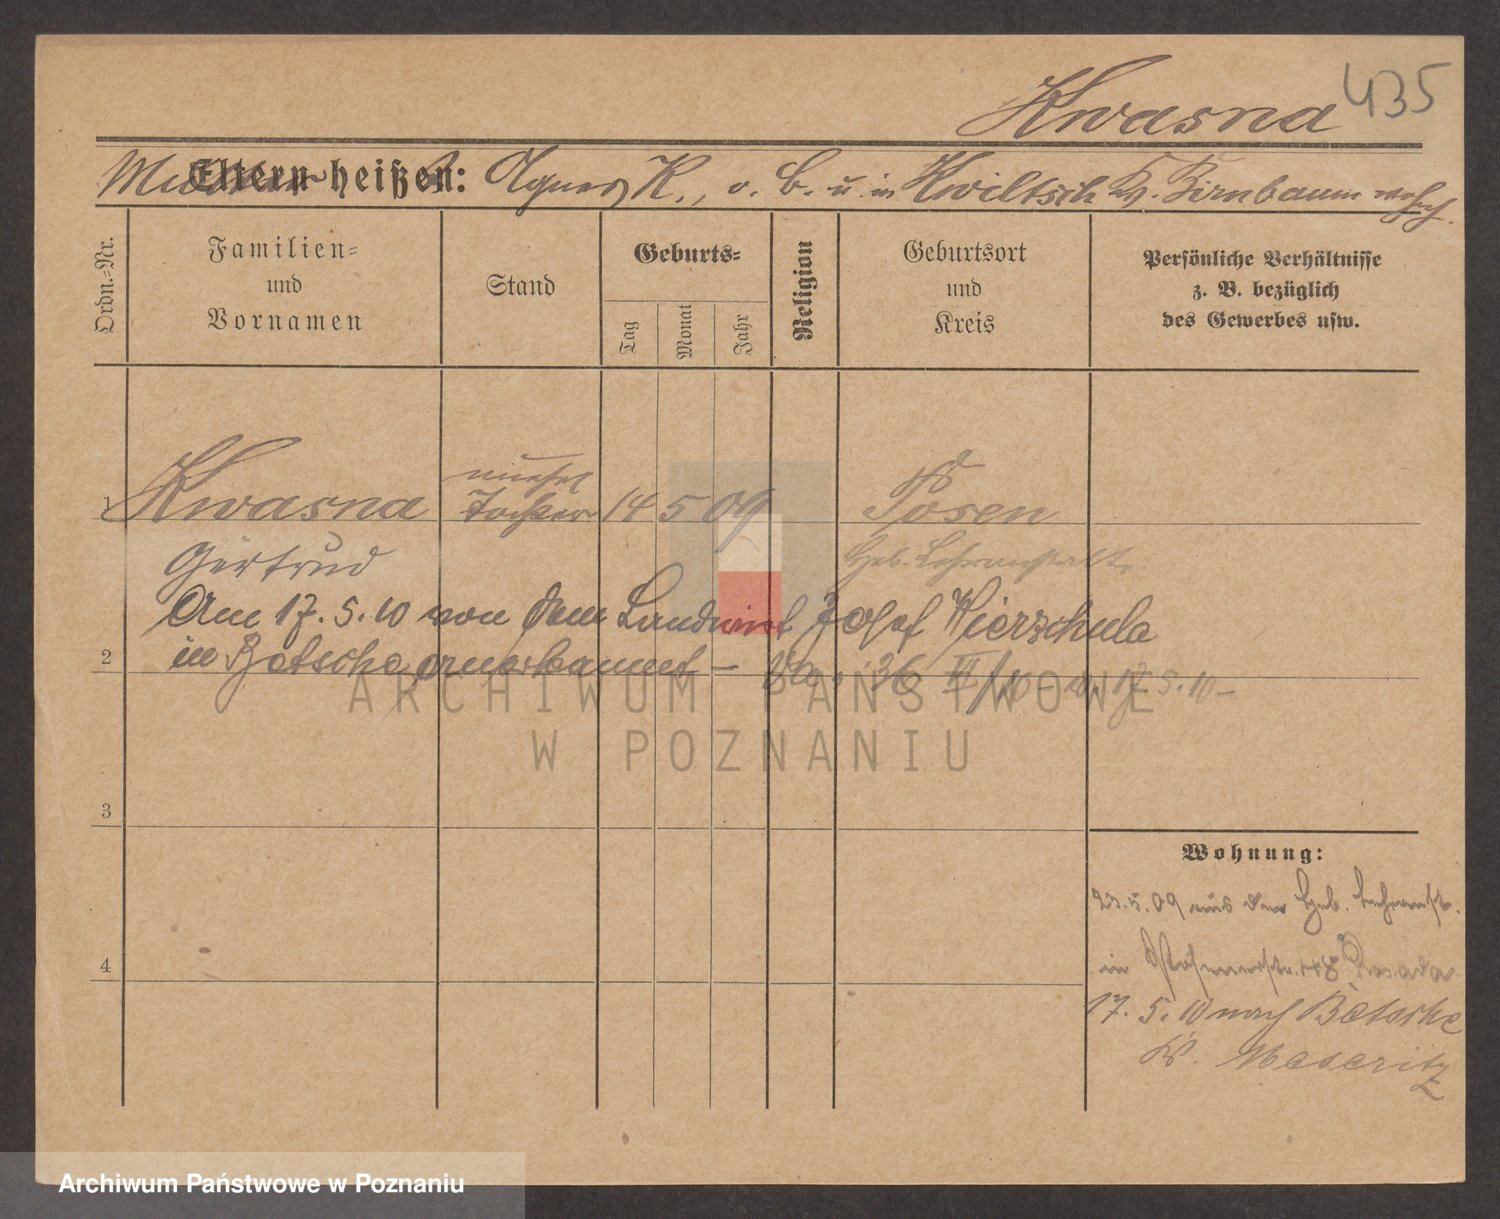 Kwasna 435
Eltern heißen: Agnes K., v. B. u in Kwiltsch Kr. Birnbaum wohnh.
Ordn.-Nr.
Familien-
und
Vornamen
Stand
Geburts-
Tag
Monat
Jahr
Religion
Geburtsort
und
Kreis
Persönliche Verhältnisse
z. B. bezüglich
des Gewerbes usw.
unehel
1 Kwasna Tochter 14 5 09 Posen
Gertrud Heb. Lehranstalt.
Am 17. 5. 10 von dem Landwirt Josef Wierzchula
2 in Betsche anerkannt – 36 III/10 17. 5. 10 –
ARCHIWUM PAŃSTWOWE
W POZNANIU
3
Wohnung:
5. 09 aus der Heb. Lehranst.
4
in 48
17. 5. 10 nach Betsche
Kr. Meseritz
Archiwum Państwowe w Poznaniu